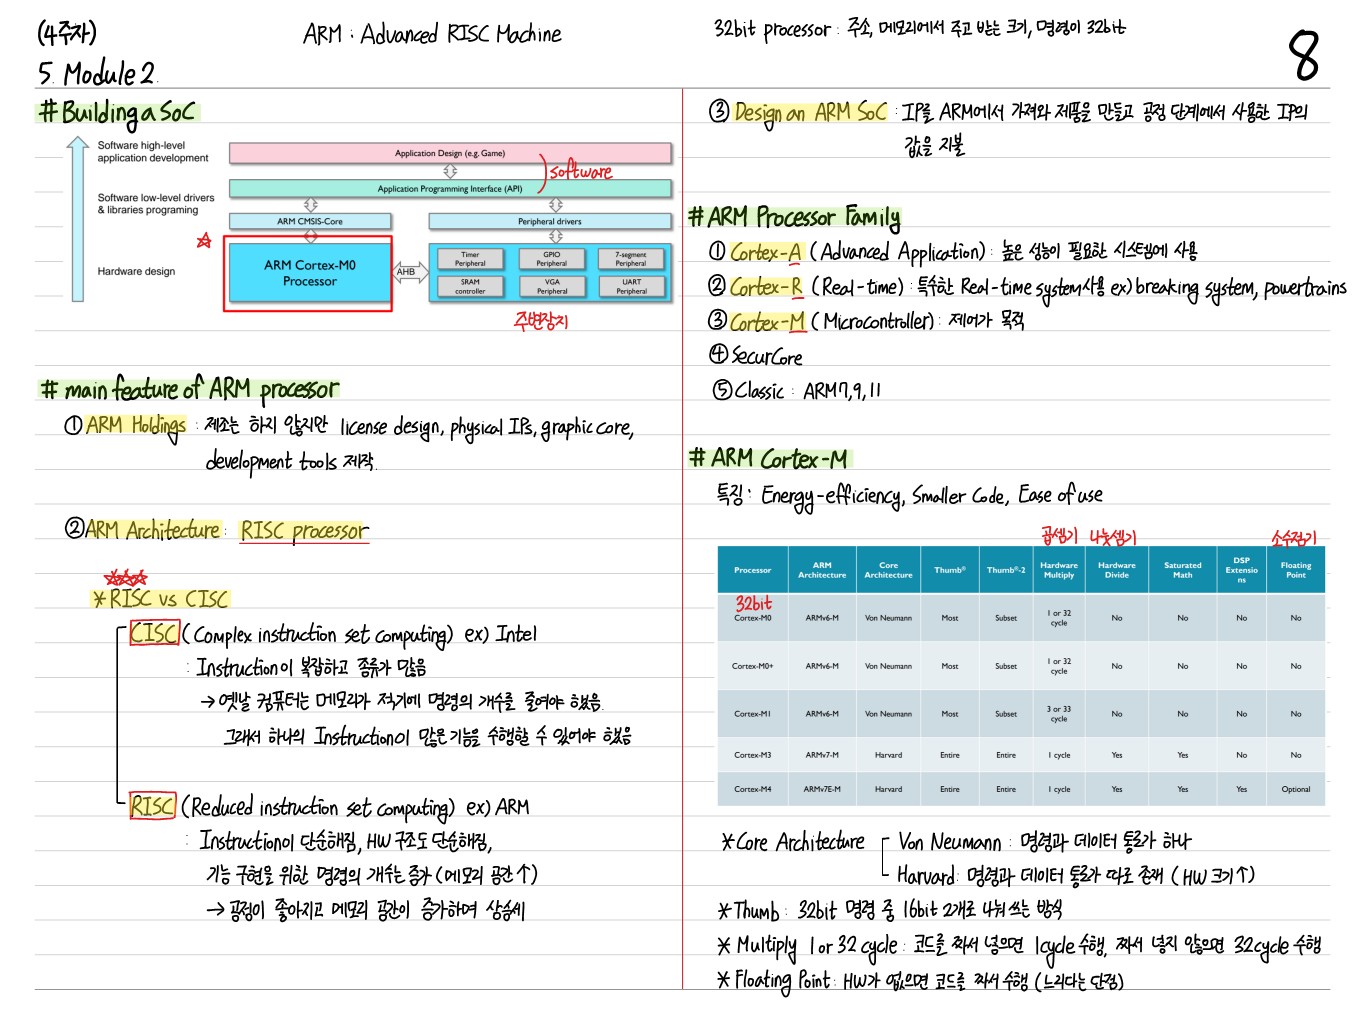 (4주차)
ARM : Advanced RISC Machine
32bit processor : 주소, 메모리에서 주고 받는 크기, 명령이 32bit
8
5. Module 2.
# Building a SoC
Software high-level
application development
Software low-level drivers
& libraries programing
Hardware design
Application Design (e.g. Game)
software
Application Programming Interface (API)
ARM CMSIS-Core
Peripheral drivers
ARM Cortex-M0
Processor
AHB
Timer
Peripheral
GPIO
Peripheral
7-segment
Peripheral
SRAM
controller
VGA
Peripheral
UART
Peripheral
주변장치
# main feature of ARM processor
① ARM Holdings : 제조는 하지 않지만 license design, physical IPs, graphic core,
development tools 제작.
② ARM Architecture : RISC processor
* RISC vs CISC
CISC (Complex instruction set computing) ex) Intel
: Instruction이 복잡하고 종류가 많음
→ 옛날 컴퓨터는 메모리가 적기에 명령의 개수를 줄여야 했음.
그래서 하나의 Instruction이 많은 기능을 수행할 수 있어야 했음
RISC (Reduced instruction set computing) ex) ARM
: Instruction이 단순해짐, HW 구조도 단순해짐,
기능 구현을 위한 명령의 개수는 증가 (메모리 공간↑)
→ 공정이 좋아지고 메모리 공간이 증가하며 상승세
③ Design an ARM SoC : IP를 ARM에서 가져와 제품을 만들고 공정 단계에서 사용한 IP의
값을 지불
# ARM Processor Family
① Cortex-A (Advanced Application) : 높은 성능이 필요한 시스템에 사용
② Cortex-R (Real-time) : 특수한 Real-time system사용 ex) breaking system, powertrains
③ Cortex-M (Microcontroller) : 제어가 목적
④ SecurCore
⑤ Classic : ARM 7, 9, 11
# ARM Cortex-M
특징 : Energy-efficiency, Smaller Code, Ease of use
곱셈기 나눗셈기 소수점기
Processor
ARM
Architecture
Core
Architecture
Thumb®
Thumb®-2
Hardware
Multiply
Hardware
Divide
Saturated
Math
DSP
Extensio
ns
Floating
Point
32bit
Cortex-M0 ARMv6-M Von Neumann Most Subset 1 or 32 cycle No No No No
Cortex-M0+ ARMv6-M Von Neumann Most Subset 1 or 32 cycle No No No No
Cortex-M1 ARMv6-M Von Neumann Most Subset 3 or 33 cycle No No No No
Cortex-M3 ARMv7-M Harvard Entire Entire 1 cycle Yes Yes No No
Cortex-M4 ARMv7E-M Harvard Entire Entire 1 cycle Yes Yes Yes Optional
* Core Architecture
Von Neumann : 명령과 데이터 통로가 하나
Harvard : 명령과 데이터 통로가 따로 존재 (HW 크기↑)
* Thumb : 32bit 명령 중 16bit 2개로 나눠 쓰는 방식
* Multiply 1 or 32 cycle : 코드를 짜서 넣으면 1cycle 수행, 짜서 넣지 않으면 32cycle 수행
* Floating Point : HW가 없으면 코드를 짜서 수행 (느리다는 단점)